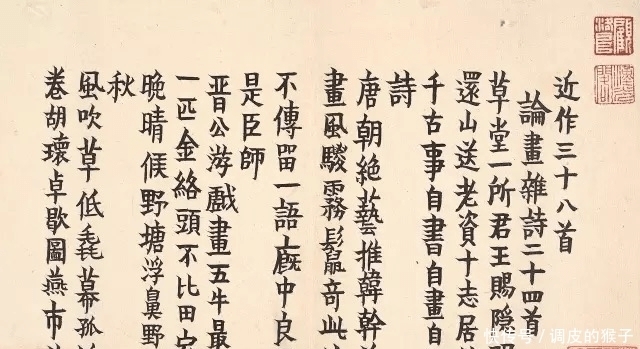 近作三十八首
論畫雜詩二十四首
草堂一所君王賜隱
還山送老資十志居
千古事自書自畫自
詩
唐朝絶藝推韓幹
畫風騣霧鬣奇此
不傳留一語廐中良
是臣師
晋公游戲畫五牛最
一匹金絡頭不比田
晚晴候野塘浮鼻野
秋
風吹草低毳幕孤
卷胡瓌卓歇圖燕市
快传号/调皮的猴子